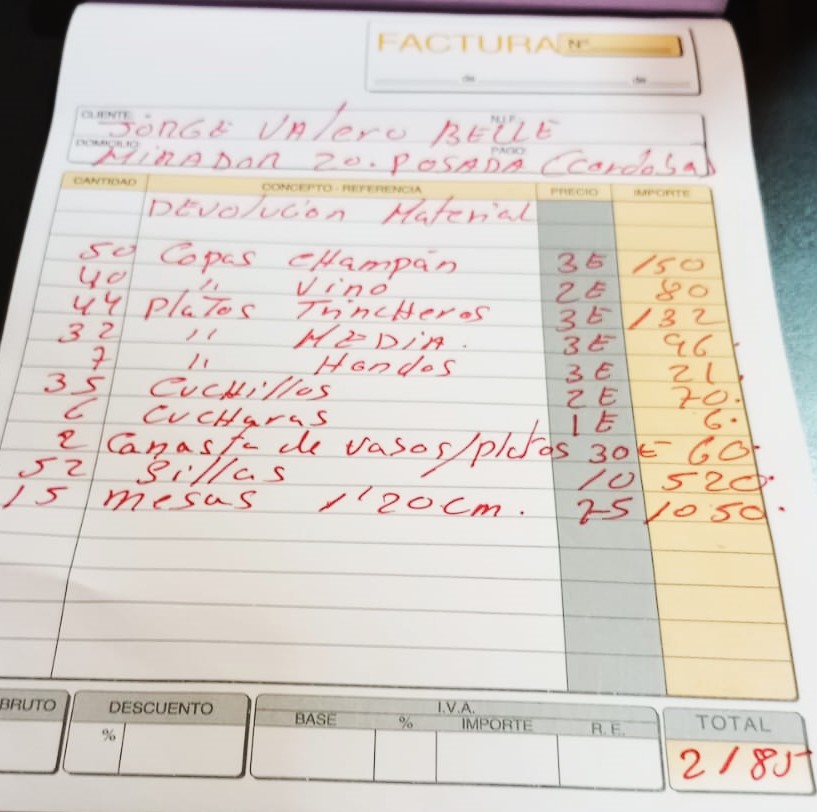 FACTURA Nº
de de
CLIENTE N.I.F.
JORGE VAlero BELLE
DOMICILIO PAGO
MIRADOR 20. POSADA (Cordoba)
CANTIDAD CONCEPTO - REFERENCIA PRECIO IMPORTE
DEVolucion Material
50 Copas cHampán 3E 150
40 " Vino 2E 80
44 PlaTos TrincHeros 3E 132
32 " MEDIA. 3E 96.
7 " Hondos 3E 21.
35 CucHillos 2E 70.
6 CucHaras 1E 6.
2 Canasta de vasos/platos 30E 60.
52 Sillas 10 520.
15 mesas 1'20cm. 75 1050.
BRUTO DESCUENTO I.V.A. TOTAL
% BASE % IMPORTE R.E.
2185